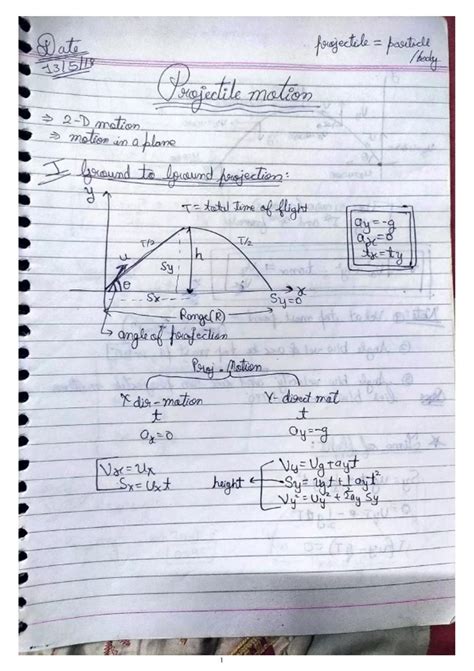 Date
13/5/19
projectile = particle
/body
Projectile motion
⇒ 2-D motion
⇒ motion in a plane
I Ground to Ground projection:
y
T = total time of flight
ay=-g
ax=0
tx=ty
T/2
T/2
u
h
Sy
θ
Sx
Sy=0
x
Range(R)
↳ angle of projection
Proj. Motion
X dir-motion
Y-direct mot
t
t
ax=0
ay=-g
Vx=Ux
Sx=Uxt
height ←
Vy=Uy+ayt
Sy=Uyt+1/2 ayt²
Vy²=Uy²+2ay Sy
1